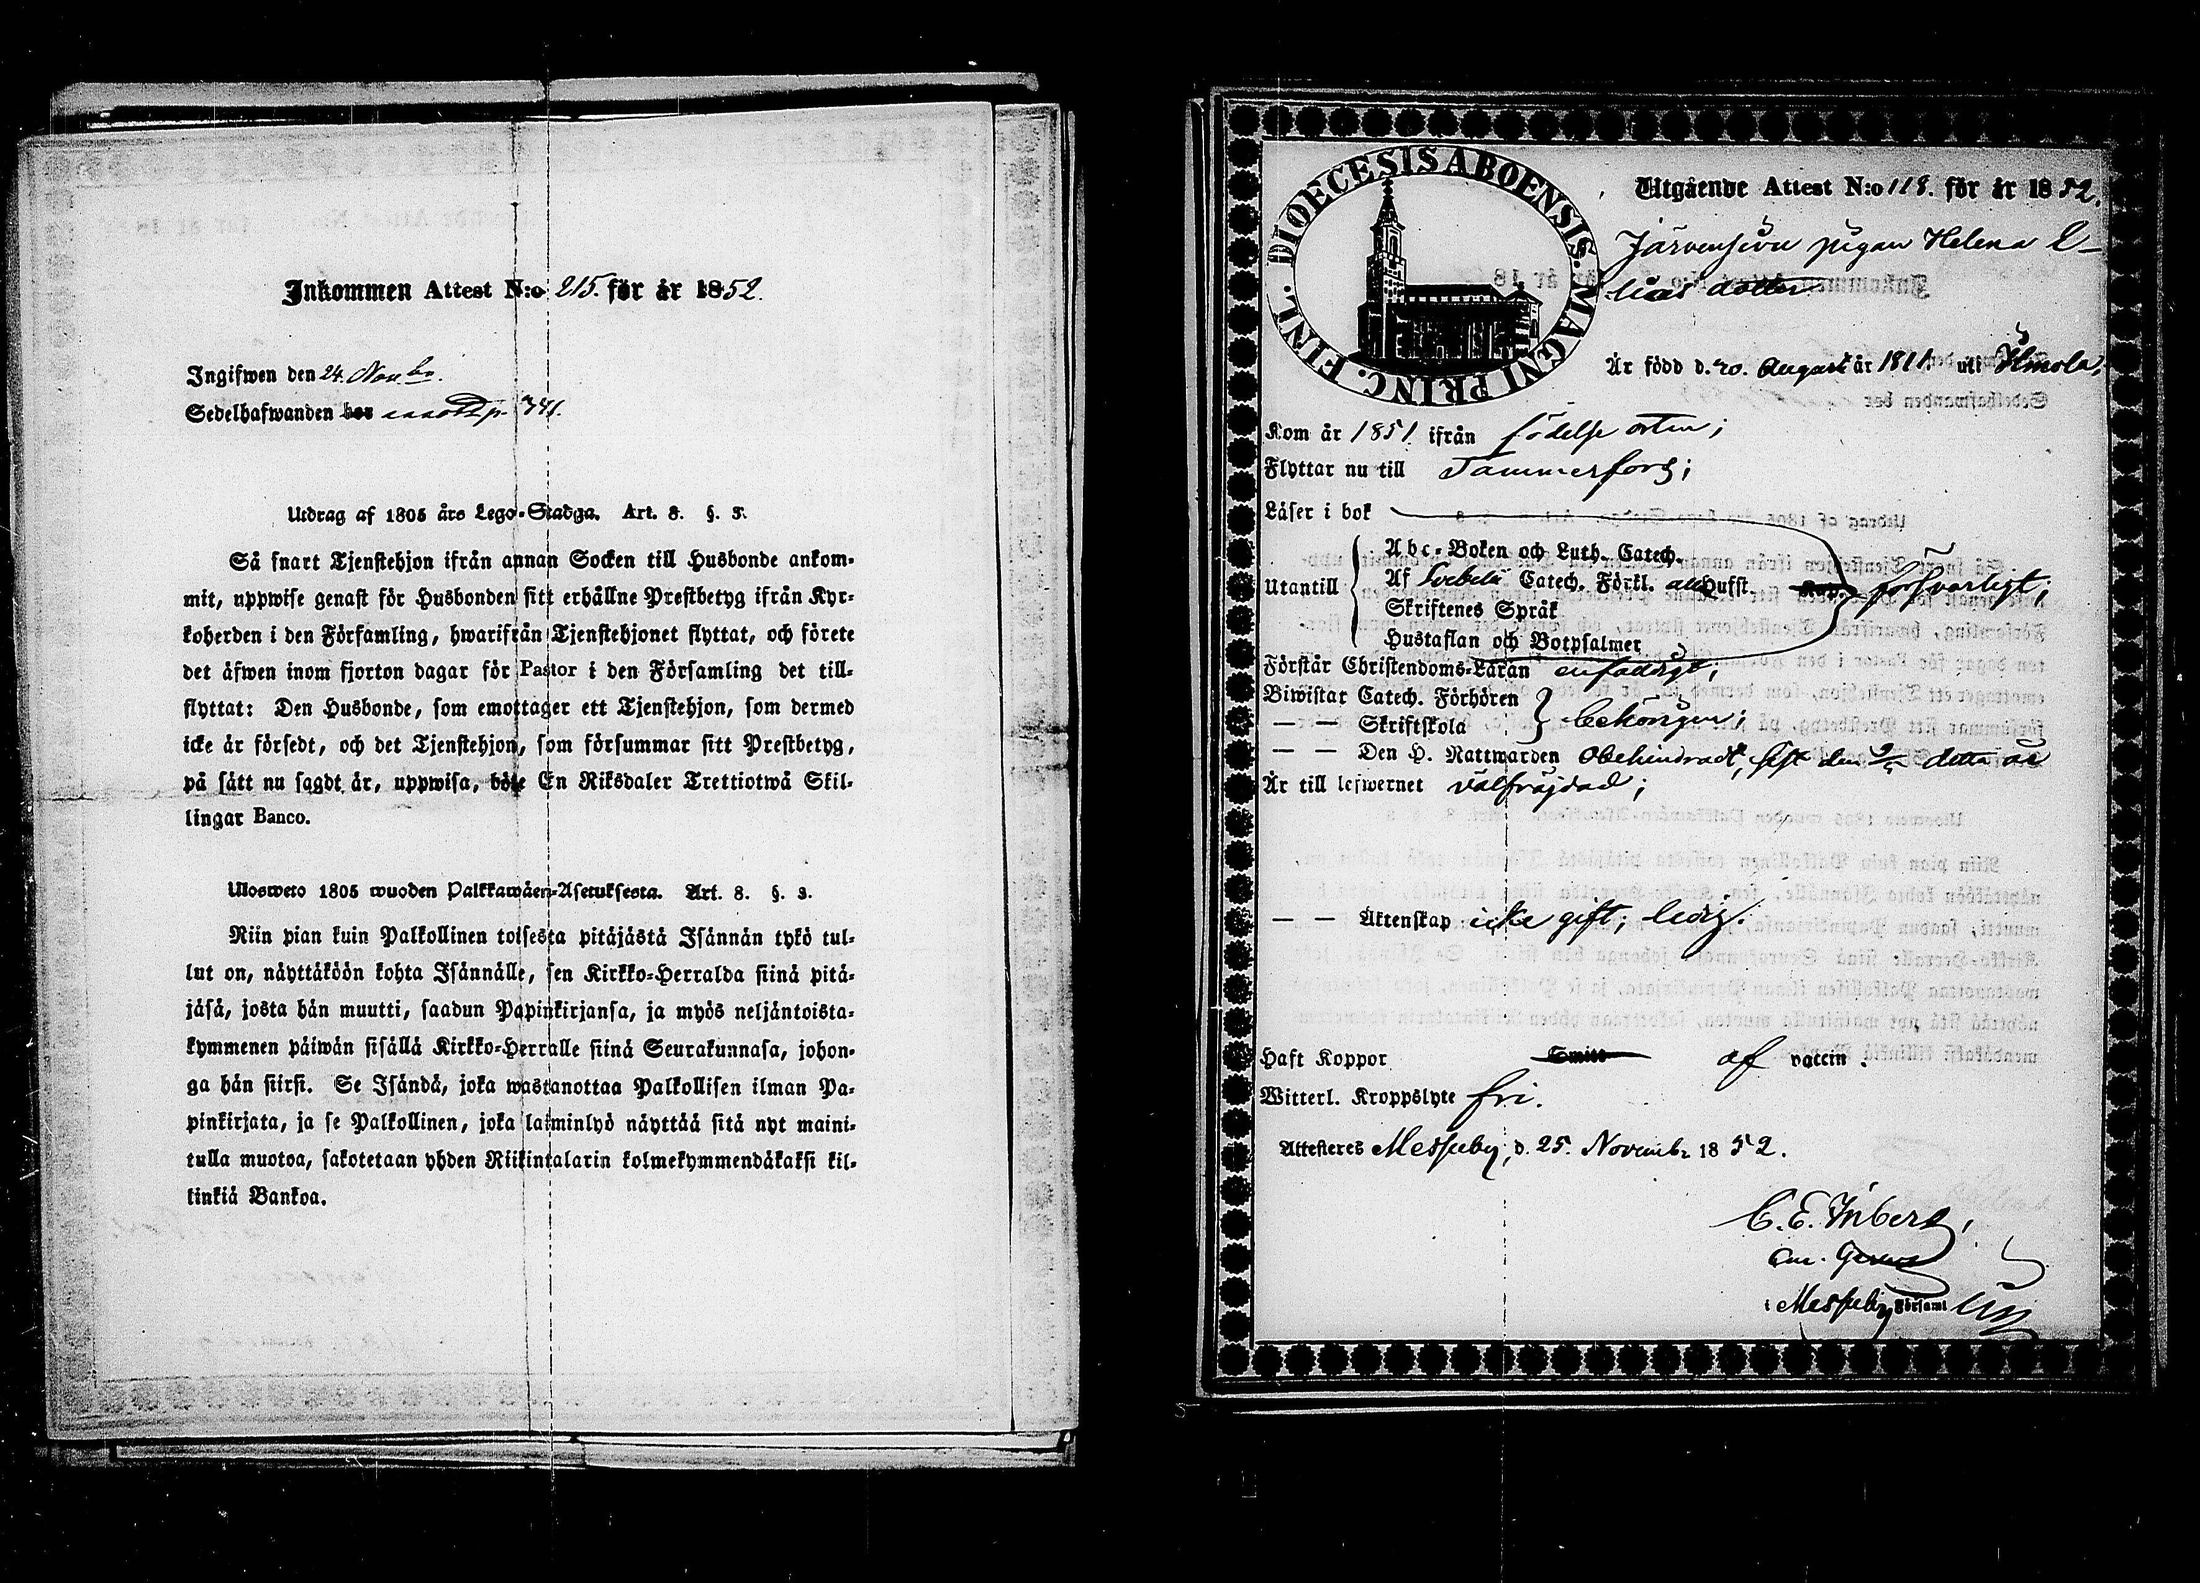 Inkommen Attest N:o 215. för år 1852.
Ingifwen den 24. Novbr.
Sedelhafwanden bor p. 341.
Utdrag af 1805 års Lego-Stadga. Art. 8. §. 3.
Så snart Tjenstehjon ifrån annan Socken till Husbonde ankom-
mit, uppwise genast för Husbonden sitt erhållne Prestbetyg ifrån Kyr-
koherden i den Församling, hwarifrån Tjenstehjonet flyttat, och förete
det äfwen inom fjorton dagar för Pastor i den Församling det till-
flyttat: Den Husbonde, som emottager ett Tjenstehjon, som dermed
icke är försedt, och det Tjenstehjon, som försummar sitt Prestbetyg,
på sätt nu sagdt är, uppwisa, böte En Riksdaler Trettiotwå Skil-
lingar Banco.
Ulosweto 1805 wuoden Palkkawäen-Asetuksesta. Art. 8. §. 3.
Niin pian kuin Palkollinen toisesta pitäjästä Isännän tykö tul-
lut on, näyttäköön kohta Isännälle, sen Kirkko-Herralda siinä pitä-
jäsä, josta hän muutti, saadun Papinkirjansa, ja myös neljäntoista-
kymmenen päiwän sisällä Kirkko-Herralle siinä Seurakunnasa, johon-
ga hän siirsi. Se Isändä, joka wastanottaa Palkollisen ilman Pa-
pinkirjata, ja se Palkollinen, joka laiminlyö näyttää sitä nyt maini-
tulla muotoa, sakotetaan yhden Riikintalarin kolmekymmendäkaksi kil-
linkiä Bankoa.
DIOECESIS ABOENSIS. MAGNI PRINC. FINL.
Utgående Attest N:o 118. för år 1852.
Järvensivu pigan Helena E-
lias dotter
Är född d. 20. Augusti år 1811. uti Ilmola,
Kom år 1851 ifrån födelse orten;
Flyttar nu till Tammerfors;
Läser i bok
Abc-Boken och Luth. Catech.
Utantill Af Svebelii Catech. Förkl. alla Hufst. Kap. försvarligt;
Skriftenes Språk
Hustaflan och Botpsalmer
Förstår Christendoms-Läran enfaldigt;
Biwistar Catech. Förhören
— — Skriftskola behörigen;
— — Den H. Nattwarden Obehindradt, sist den detta år
Är till lefwernet välfräjdad;
— — Äktenskap icke gift; ledig.
Haft Koppor Smitt af vaccin.
Witterl. Kroppslyte fri.
Attesteres Messuby, d. 25. Novembr 1852.
C. E. Inberg,
i Messuby Församl